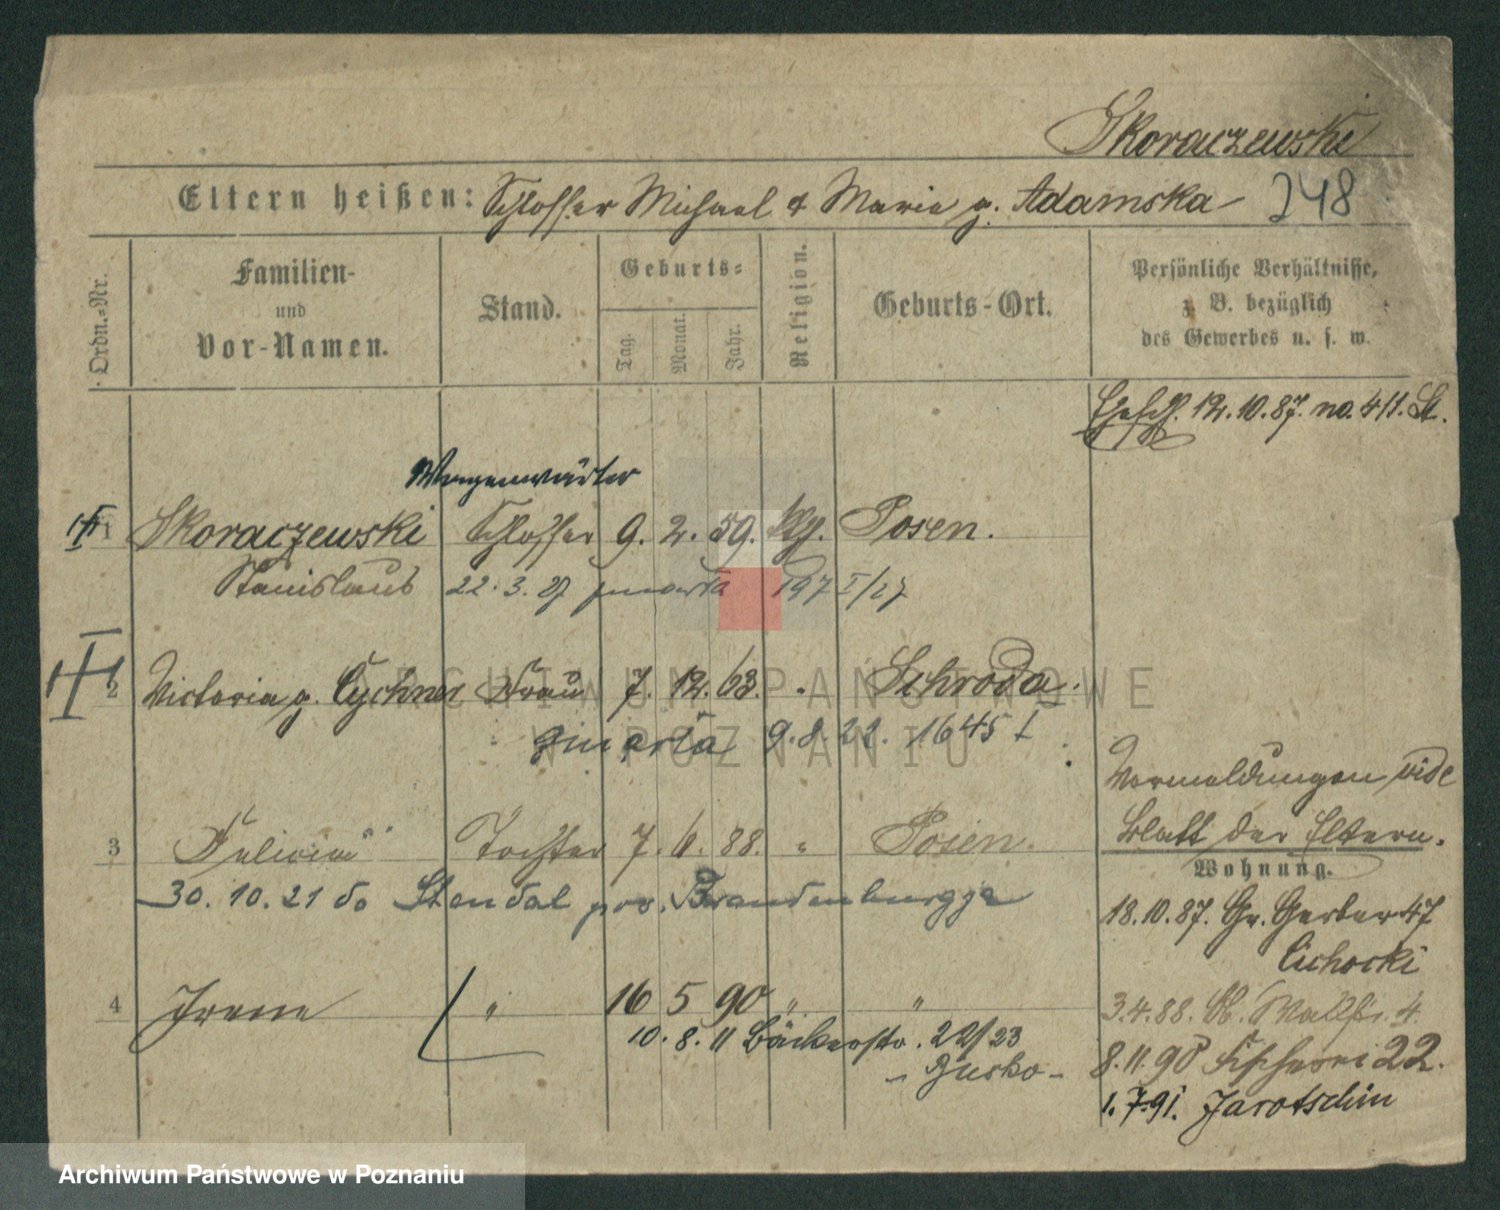 Skoraczewski
Eltern heißen: Schlosser Michael & Marie g. Adamska 248
Ordn.-Nr.
Familien-
und
Vor-Namen.
Stand.
Geburts-
Tag.
Monat.
Jahr.
Religion.
Geburts-Ort.
Persönliche Verhältnisse,
z. B. bezüglich
des Gewerbes u. s. w.
12.10.87. no. 411. St.
Wagenwärter
1 Skoraczewski Schlosser 9. 2. 59. kth. Posen.
Stanislaus 22.3.27 zmarł 197 I/27
2 Victoria g. Cychner Frau 7. 12. 63. " Schroda.
zmarła 9.8.22. 1645 I
Vermeldungen vide
Blatt der Eltern.
3 Felicia Tochter 7. 6. 88. " Posen.
Wohnung.
30.10.21 do Stendal pow. Brandenburgja
18.10.87. Gr. Gerber 47
Cichocki
4 Irene " 16 5 90 " "
3.4.88. Ob. Wallstr. 4.
10.8.11 Bäckerstr. 22/23
- Busko -
8.11.90 Fischerei 22.
1.7.91. Jarotschin
ARCHIWUM PAŃSTWOWE
W POZNANIU
Archiwum Państwowe w Poznaniu